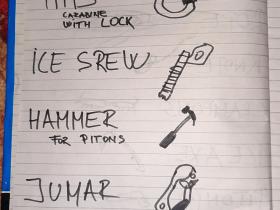 HMS
CARABINE
WITH LOCK
ICE SREW
HAMMER
FOR PITONS
JUMAR